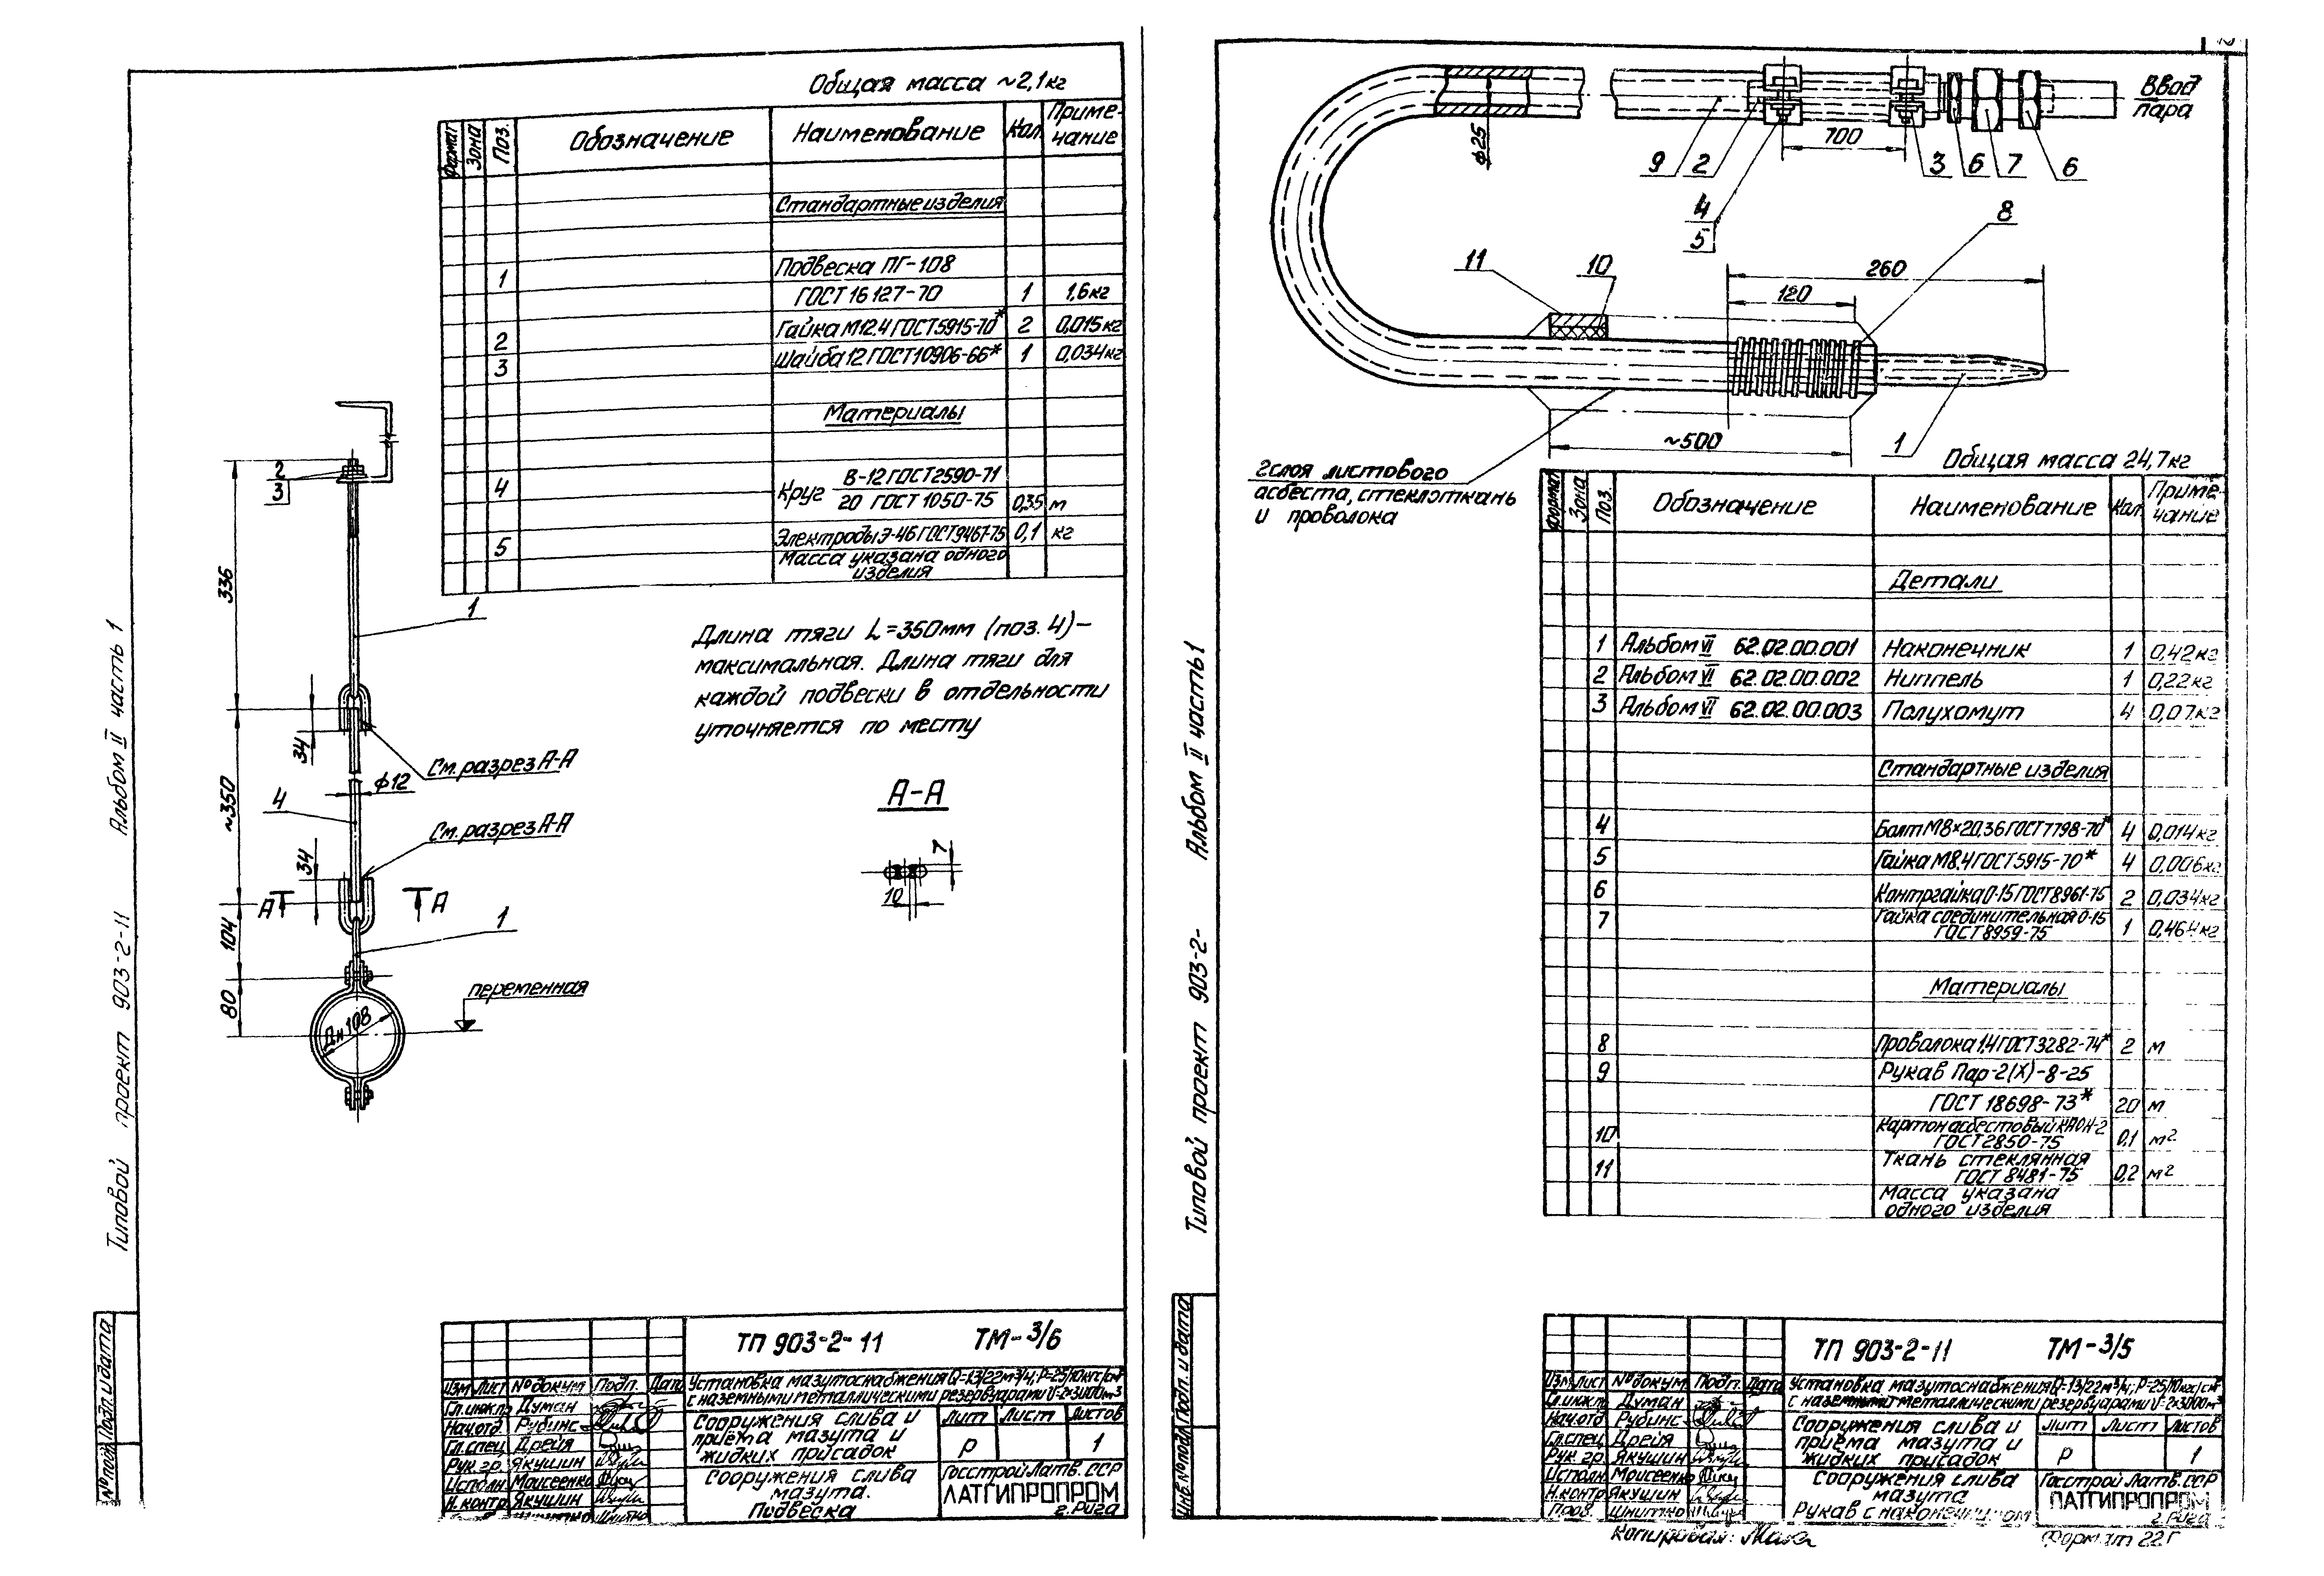 Общая масса ~2,1кг
Формат Зона Поз. Обозначение Наименование Кол. Приме-чание
Стандартные изделия
1 Подвеска ПГ-108
ГОСТ 16127-70 1 1,6кг
2 Гайка М12.4 ГОСТ5915-70* 2 0,015кг
3 Шайба 12 ГОСТ10906-66* 1 0,034кг
Материалы
4 Круг В-12 ГОСТ2590-71
20 ГОСТ 1050-75 0,35 м
5 Электроды Э-46 ГОСТ9467-75 0,1 кг
Масса указана одного
изделия
2
3
336
1
34
См. разрез А-А
ф12
~350
4
См. разрез А-А
34
А А
104
1
80
переменная
Дн 108
Длина тяги L=350мм (поз. 4)-
максимальная. Длина тяги для
каждой подвески в отдельности
уточняется по месту
А-А
7
10
Типовой проект 903-2-11 Альбом II часть 1
№ подл. Подп. и дата
ТП 903-2-11 ТМ-3/6
Изм Лист № докум Подп. Дата
Установка мазутоснабжения Q=13/22м³/ч; Р=25/10кгс/см²
с наземными металлическими резервуарами V=2х3000м³
Гл.инж.пр Думан
Нач.отд. Рубинс
Гл.спец. Дрейя
Рук. гр. Якушин
Исполн. Моисеенко
Н. контр. Якушин
Шнитко
Сооружения слива и
приёма мазута и
жидких присадок
Лит Лист Листов
Р 1
Сооружения слива
мазута.
Подвеска
Госстрой Латв. ССР
ЛАТГИПРОПРОМ
г. Рига
ф25
9 2 700 3 6 7 6
4
5
Ввод
пара
8
11 10
260
120
~500
1
2 слоя листового
асбеста, стеклоткань
и проволока
Общая масса 24,7кг
Формат Зона Поз. Обозначение Наименование Кол. Приме-чание
Детали
1 Альбом VI 62.02.00.001 Наконечник 1 0,42кг
2 Альбом VI 62.02.00.002 Ниппель 1 0,22кг
3 Альбом VI 62.02.00.003 Полухомут 4 0,07кг
Стандартные изделия
4 Болт М8×20.36 ГОСТ7798-70* 4 0,014кг
5 Гайка М8.4 ГОСТ5915-70* 4 0,006кг
6 Контргайка О-15 ГОСТ8961-75 2 0,034кг
7 Гайка соединительная О-15
ГОСТ 8959-75 1 0,464кг
Материалы
8 Проволока 1,4 ГОСТ3282-74* 2 м
9 Рукав Пар-2(Х)-8-25
ГОСТ 18698-73* 20 м
10 Картон асбестовый КАОН-2
ГОСТ 2850-75 0,1 м²
11 Ткань стеклянная
ГОСТ 8481-75 0,2 м²
Масса указана
одного изделия
Типовой проект 903-2- Альбом II часть 1
Инв.№ подл. Подп. и дата
ТП 903-2-11 ТМ-3/5
Изм Лист № докум Подп. Дата
Установка мазутоснабжения Q=13/22м³/ч; Р=25/10кгс/см²
с наземными металлическими резервуарами V=2х3000м³
Гл.инж.пр Думан
Нач.отд Рубинс
Гл.спец Дрейя
Рук. гр. Якушин
Исполн. Моисеенко
Н.контр Якушин
Пров. Шнитко
Сооружения слива и
приёма мазута и
жидких присадок
Лит Лист Листов
Р 1
Сооружения слива
мазута
Рукав с наконечником
Госстрой Латв. ССР
ЛАТГИПРОПРОМ
г. Рига
Копировал:
Формат 22Г